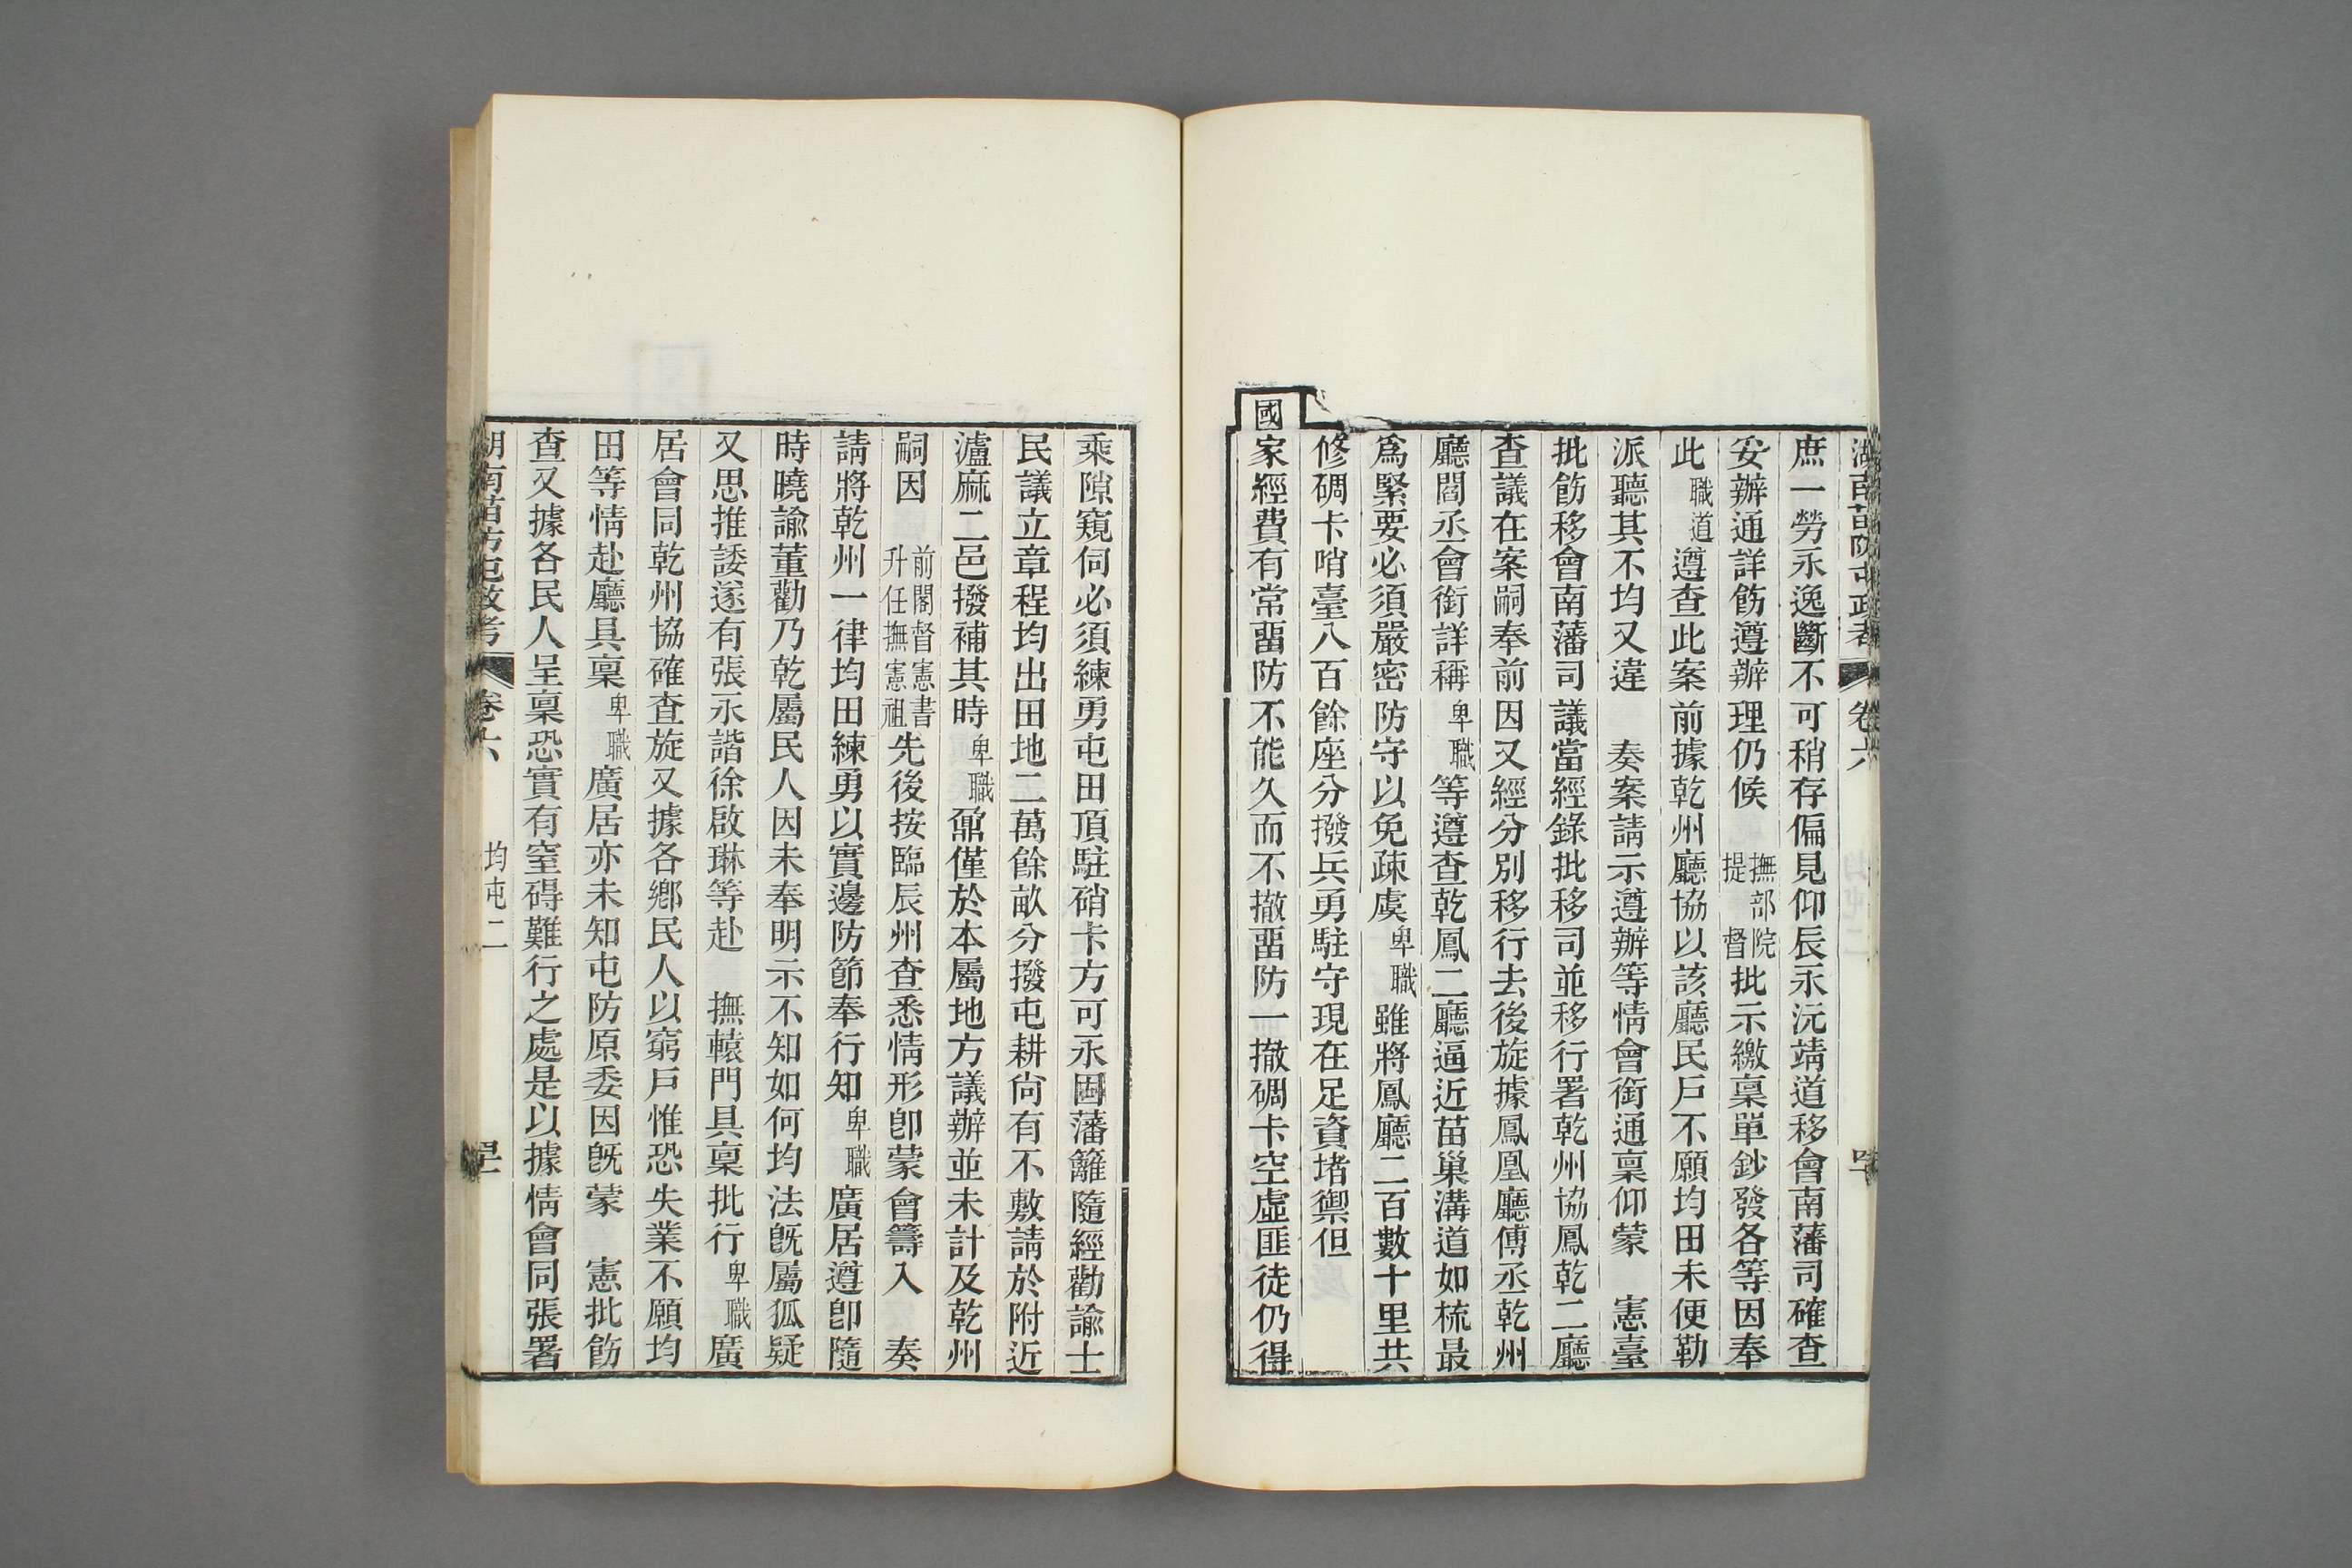 湖南苗防屯政考 卷六
庶一勞永逸斷不可稍存偏見仰辰永沅靖道移會南藩司確查
妥辦通詳飭遵辦理仍候 撫部院提督批示繳稟單鈔發各等因奉
此職道遵查此案前據乾州廳協以該廳民戶不願均田未便勒
派聽其不均又違 奏案請示遵辦等情會銜通稟仰蒙 憲臺
批飭移會南藩司議當經錄批移司並移行署乾州協鳳乾二廳
查議在案嗣奉前因又經分別移行去後旋據鳳凰廳傅丞乾州
廳閻丞會銜詳稱卑職等遵查乾鳳二廳逼近苗巢溝道如梳最
爲緊要必須嚴密防守以免疎虞卑職雖將鳳廳二百數十里共
修碉卡哨臺八百餘座分撥兵勇駐守現在足資堵禦但
國家經費有常畱防不能久而不撤畱防一撤碉卡空虛匪徒仍得
乘隙窺伺必須練勇屯田頂駐硝卡方可永固藩籬隨經勸諭士
民議立章程均出田地二萬餘畝分撥屯耕尙有不敷請於附近
瀘麻二邑撥補其時卑職鼐僅於本屬地方議辦並未計及乾州
嗣因 前閣督憲書升任撫憲祖先後按臨辰州查悉情形卽蒙會籌入 奏
請將乾州一律均田練勇以實邊防節奉行知卑職廣居遵卽隨
時曉諭董勸乃乾屬民人因未奉明示不知如何均法旣屬狐疑
又思推諉遂有張永諧徐啟琳等赴 撫轅門具稟批行卑職廣
居會同乾州協確查旋又據各鄉民人以窮戶惟恐失業不願均
田等情赴廳具稟卑職廣居亦未知屯防原委因旣蒙 憲批飭
查又據各民人呈稟恐實有窒碍難行之處是以據情會同張署
湖南苗防屯政考 卷六 均屯二